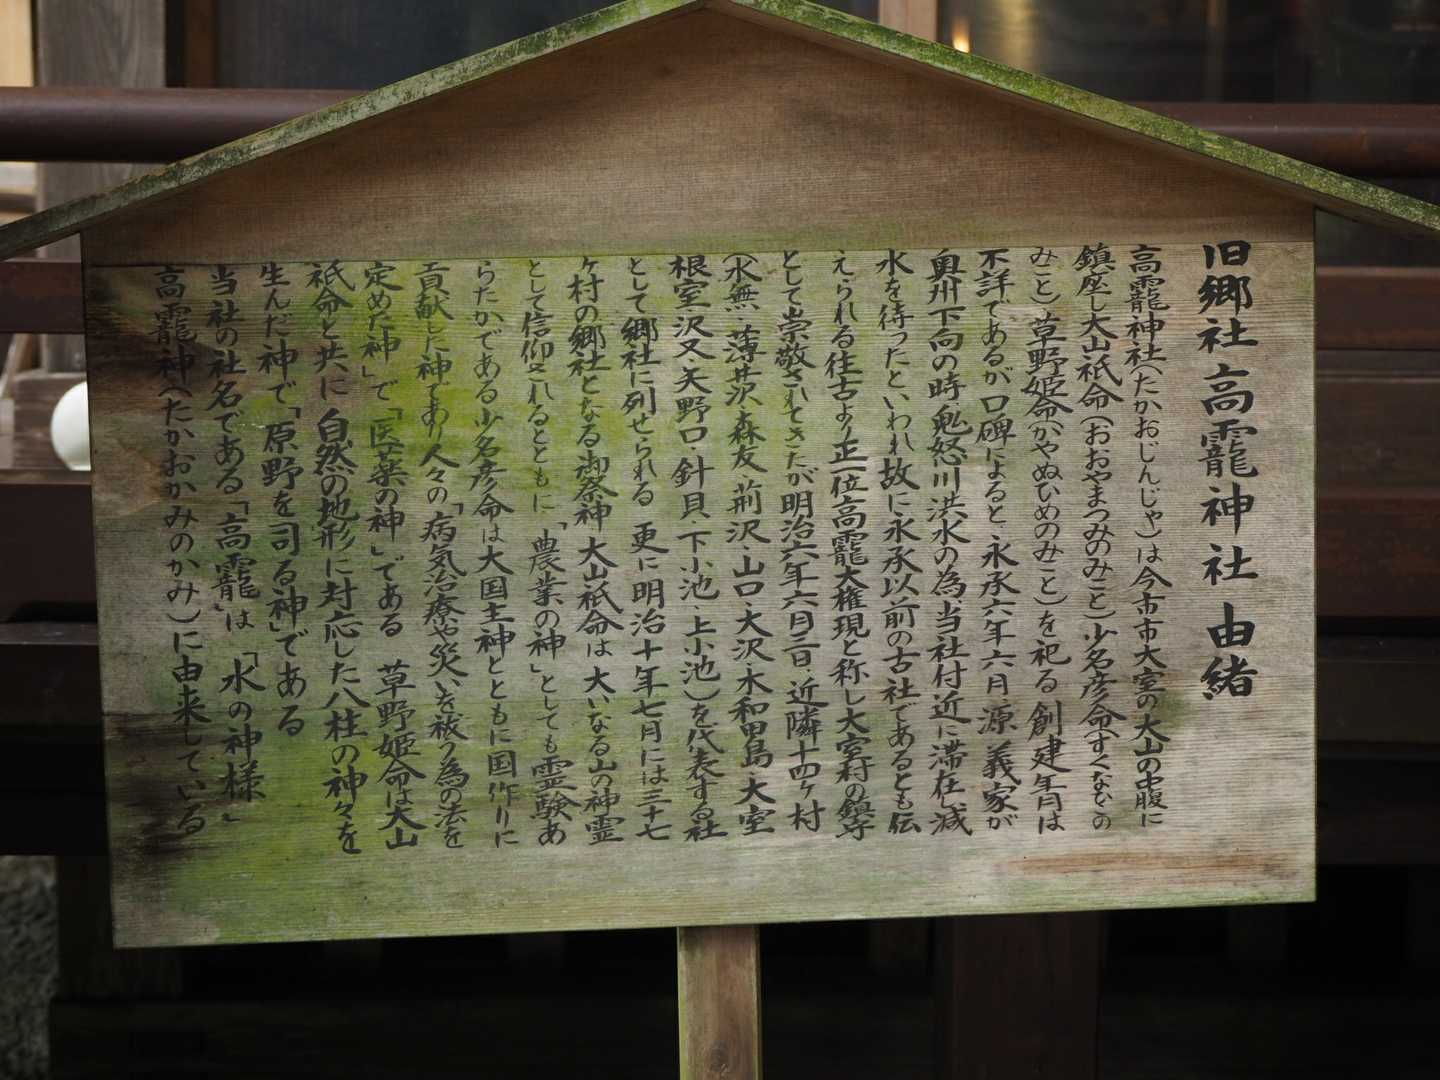 旧郷社 高龗神社 由緒
高龗神社(たかおじんじゃ)は今市市大室の大山の中腹に
鎮座し大山祇命(おおやまつみのみこと)少名彦命(すくなひこの
みこと)草野姫命(かやぬひめのみこと)を祀る 創建年月は
不詳であるが口碑によると、永承六年六月 源 義家が
奥州下向の時 鬼怒川洪水の為、当社付近に滞在し減
水を待ったといわれ故に永承以前の古社であるとも伝
えられる往古より正一位高龗大権現と称し大室村の鎮守
として崇敬されてきたが明治六年六月三日、近隣十四ヶ村
(水無・薄井沢・森友・荊沢・山口・大沢・木和田島・大室
根室・沢又・矢野口・針貝・下小池・上小池)を代表する社
として郷社に列せられる 更に明治十年七月には三十七
ヶ村の郷社となる御祭神 大山祇命は大いなる山の神霊
として信仰されるとともに「農業の神」としても霊験あ
らたかである少名彦命は大国主神とともに国作りに
貢献した神であり人々の「病気治療や災いを祓う為の法を
定めた神」で「医薬の神」である 草野姫命は大山
祇命と共に 自然の地形に対応した八柱の神々を
生んだ神で「原野を司る神」である
当社の社名である「高龗」は「水の神様」
高龗神(たかおかみのかみ)に由来している